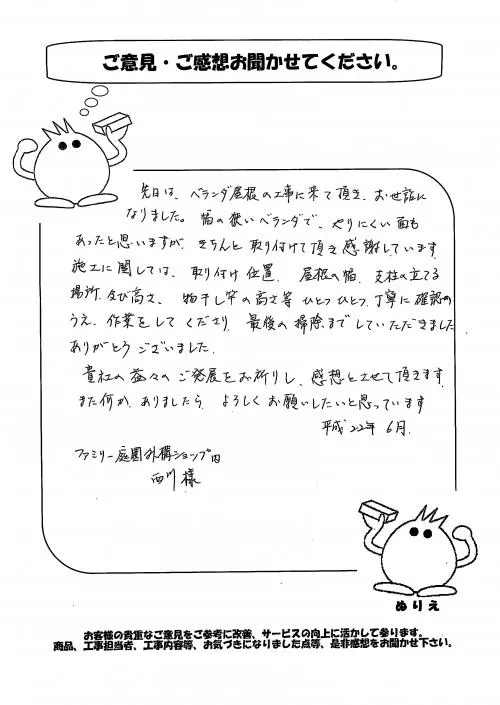 ご意見・ご感想お聞かせてください。
先日は、ベランダ屋根の工事に来て頂き、お世話に
なりました。幅の狭いベランダで、やりにくい面も
あったと思いますが、きちんと取り付けて頂き感謝しています
施工に関しては、取り付け位置、屋根の幅、支柱の立てる
場所、及び高さ、物干し竿の高さ等 ひとつひとつ、丁寧に確認の
うえ、作業をしてくださり、最後の掃除までしていただきました
ありがとうございました。
貴社の益々のご発展をお祈りし、感想とさせて頂きます
また何か、ありましたら、よろしくお願いしたいと思っています
平成22年6月.
ファミリー庭園外構ショップ内
西川様
ぬりえ
お客様の貴重なご意見をご参考に改善、サービスの向上に活かして参ります。
商品、工事担当者、工事内容等、お気づきになりました点等、是非感想をお聞かせ下さい。